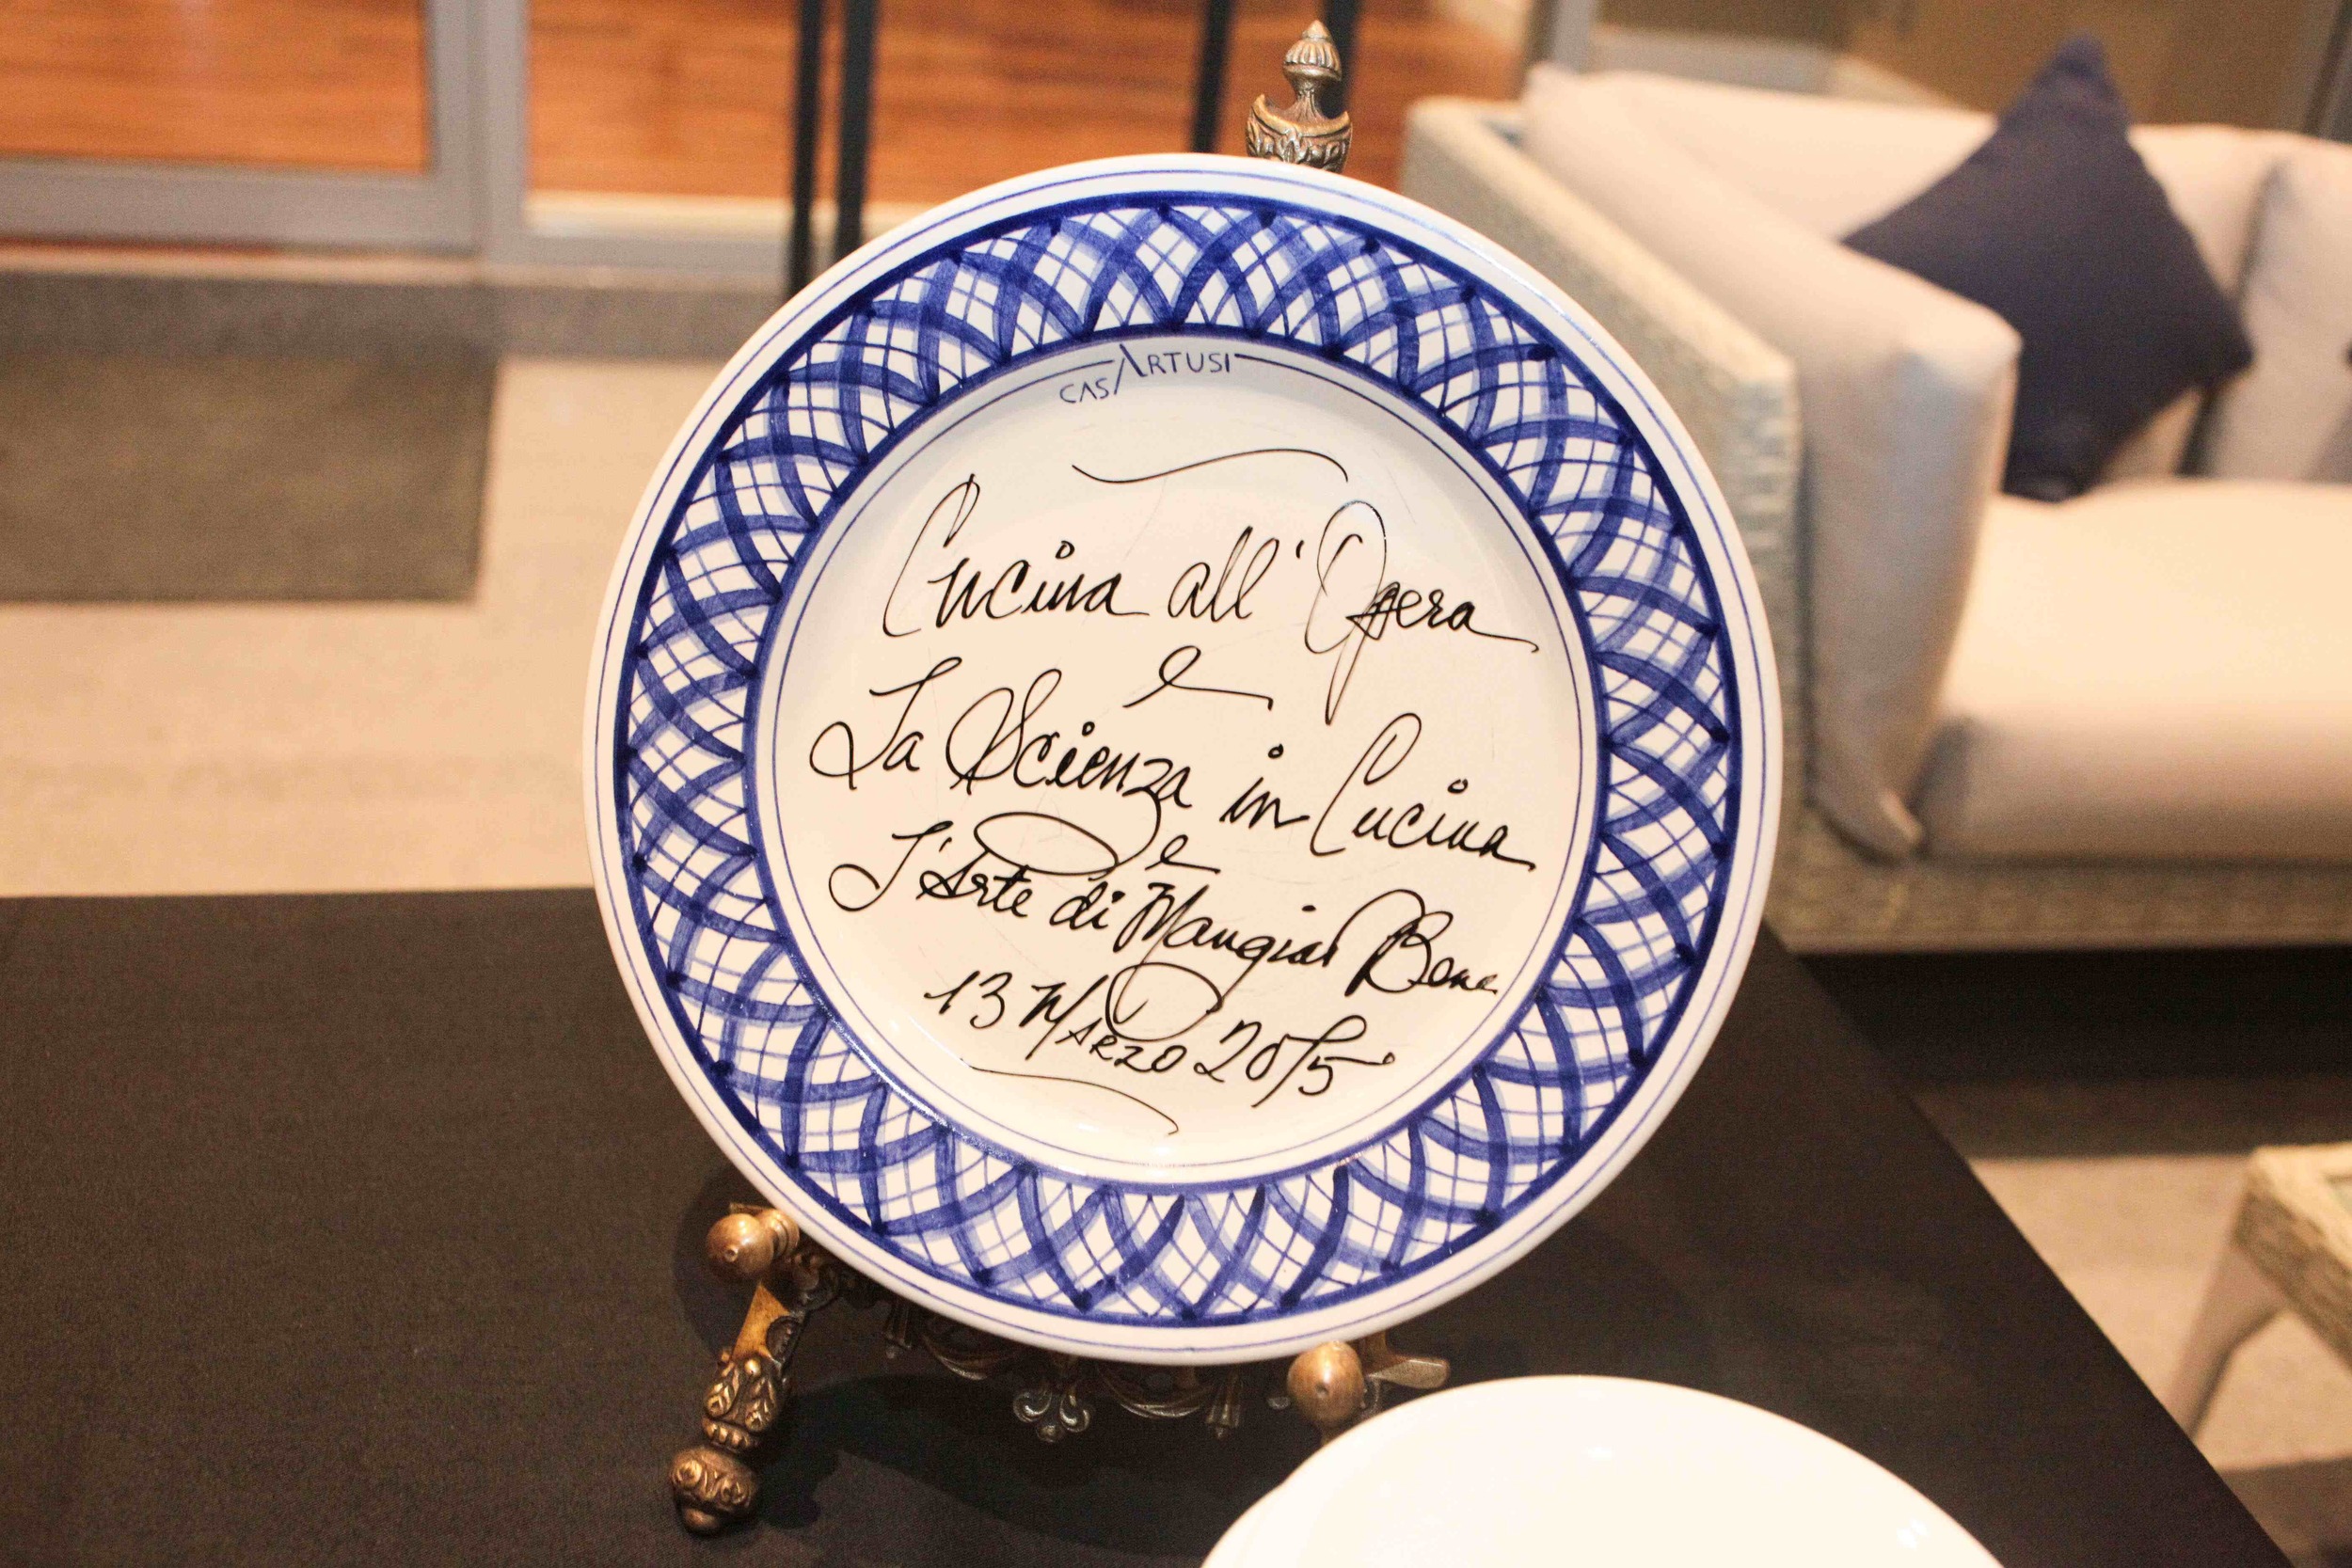 CASARTUSI
Cucina all'Opera
e
La Scienza in Cucina
e
L'Arte di Mangiar Bene
13 MARZO 2015